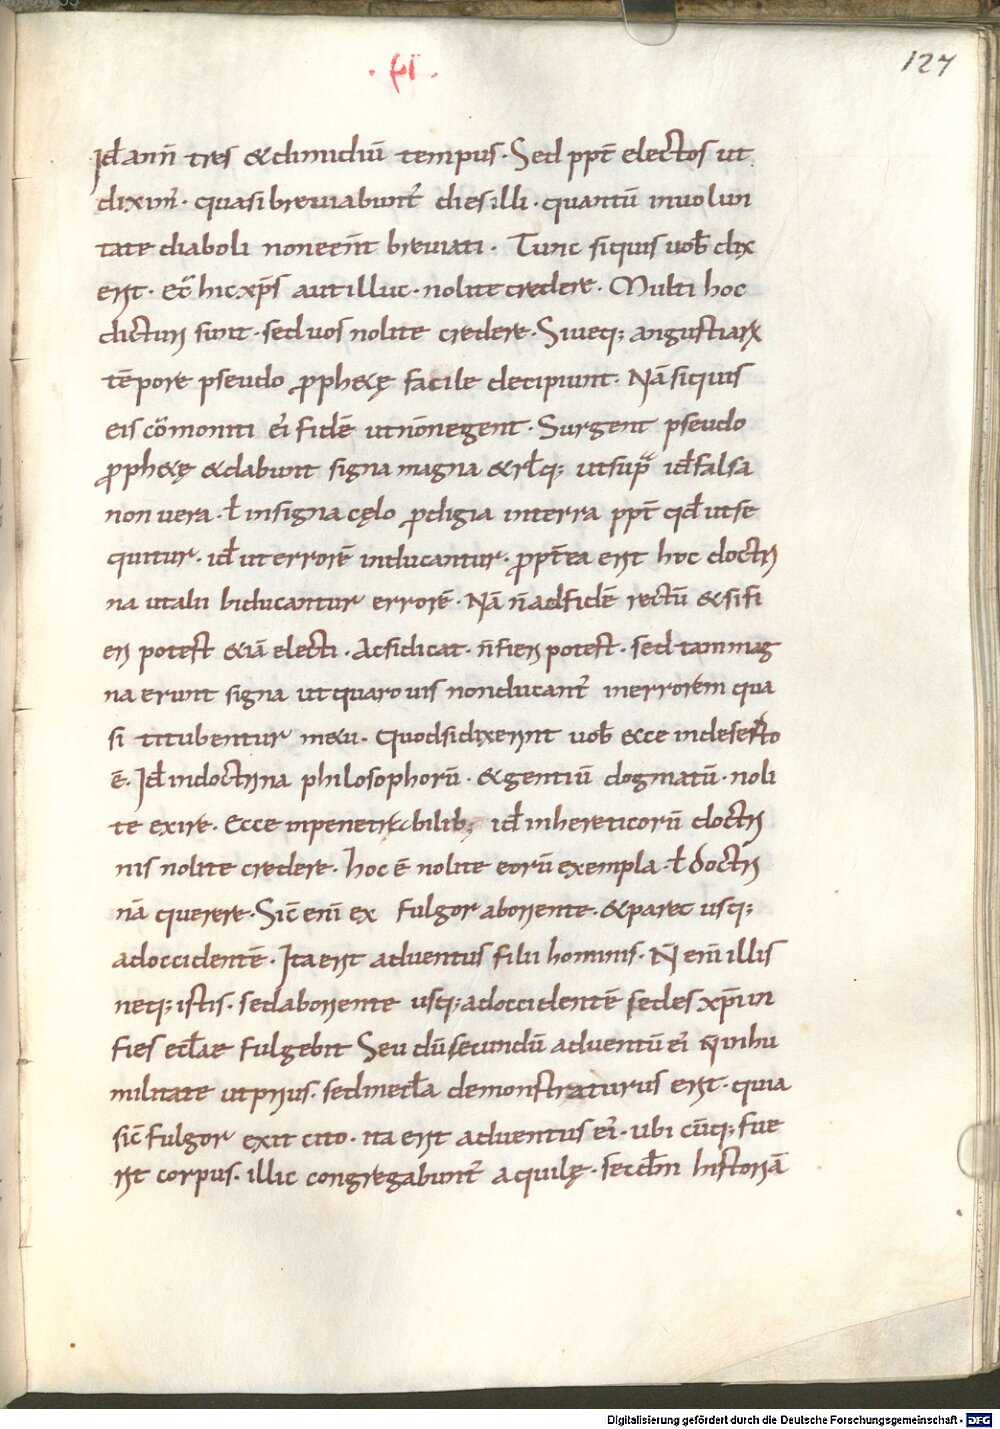 127
Id̄ ann̄ tres & dimidiū tempus. Sed ppt̄ electos ut
dixim̄. quasi breviabunt̄ dies illi. quantū in volun
tate diaboli non eēnt breviati. Tunc siquis vob̄ dix
erit. Ecc̄ hic xp̄s aut illuc. nolite credere. Multi hoc
dicturi sunt. sed vos nolite credere. Siveq; angustiarꝝ
tēpore pseudo ꝓph&ę facile decipiunt. Nā siquis
eis cōmoniti eī fidē ut nō negent. Surgent pseudo
ꝓph&ę & dabunt signa magna & rł q; ut sup̄ id̄ falsa
non vera. ł in signa cęlo ꝓdigia in terra ppt̄ qđ ut se
quitur. id̄ ut errorē inducantur. ꝓpt̄ea erit hoc doctri
na ut alii biducantur errorē. Nā n̄ ad fidē rectū & si fi
eri potest &iā electi. Ac si dicat. n̄ fieri potest. sed tam mag
na erunt signa ut quarovis non ducant̄ in errorem qua
si titubentur m&u. Quod si dixerint vob̄ ecce in deserto
ē. Id̄ in doctrina philosophorū. & gentiū dogmatū. noli
te exire. Ecce in penetrabilib; id̄ in hereticorū doctri
nis nolite credere. hoc ē nolite eorū exempla. ł doctri
nā querere. Sic̄ enī ex fulgor ab oriente. & par& usq;
ad occidentē. Ita erit adventus filii hominis. N̄ enī illis
neq; istis. sed ab oriente usq; ad occidentē sedes xp̄i in
fies eccłae fulgebit Seu dū secundū adventū eī n̄ in hu
militate ut prius. sed in eccła demonstraturus erit. quia
sic̄ fulgor exit cito. ita erit adventus eī. ubi cūq; fue
rit corpus. illic congregabunt̄ aquilę. secdm̄ historiā
Digitalisierung gefördert durch die Deutsche Forschungsgemeinschaft - DFG